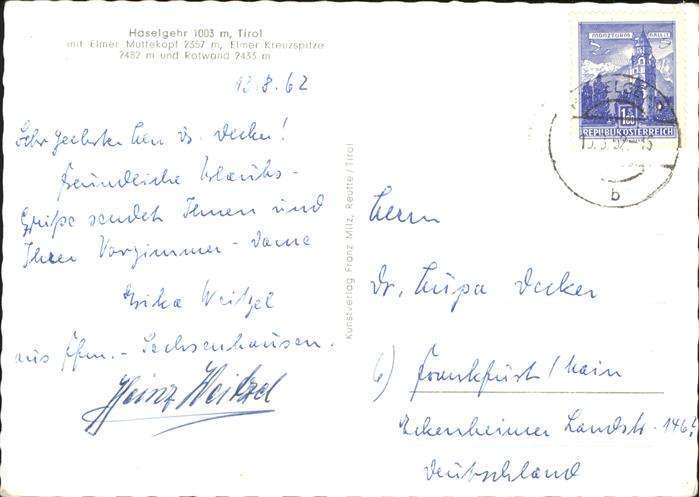 Häselgehr 1003 m, Tirol
mit Elmer Muttekopf 2357 m, Elmer Kreuzspitze
2482 m und Rotwand 2433 m
13.8.62
Sehr geehrter Herr Dr. Decker!
freundliche Urlaubs-
Grüße sendet Ihnen und
Ihrer Vorzimmer-Dame
Erika Weitzel
aus Ffm.-Sachsenhausen.
Heinz Weitzel
Kunstverlag Franz Milz, Reutte/Tirol
MÜNZTURM HALL I.T.
1.50
REPUBLIK ÖSTERREICH
b
Herrn
Dr. Decker
6) Frankfurt/Main
Eckenheimer Landstr. 146
Deutschland